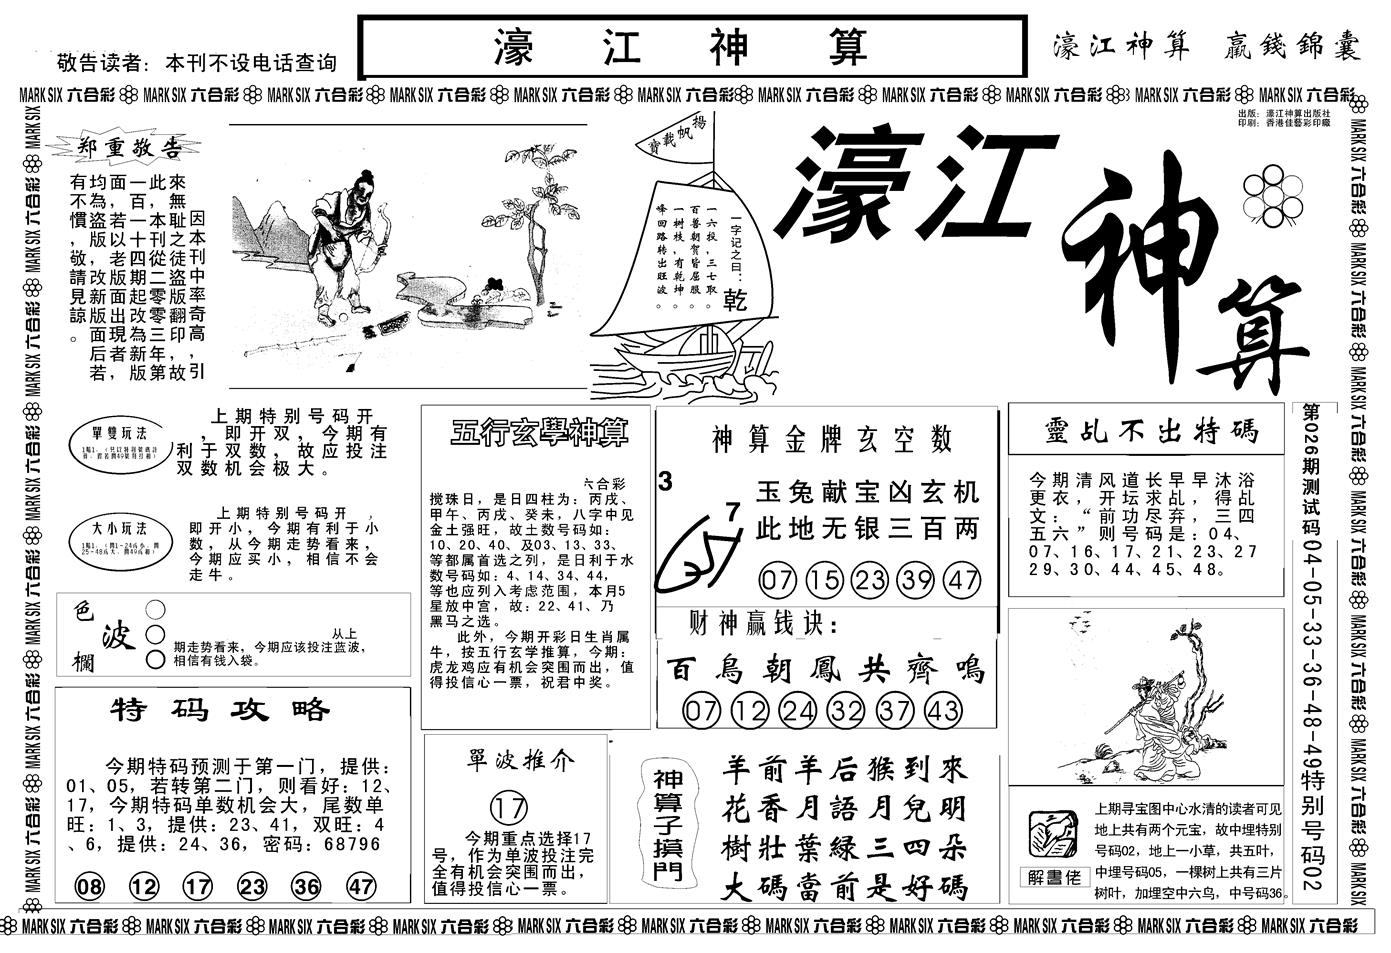 敬告读者：本刊不设电话查询
濠江神算
濠江神算 赢錢錦囊
MARK SIX 六合彩 MARK SIX 六合彩 MARK SIX 六合彩 MARK SIX 六合彩 MARK SIX 六合彩 MARK SIX 六合彩 MARK SIX 六合彩 MARK SIX 六合彩 MARK SIX 六合彩 MARK SIX 六合彩 MARK SIX 六合彩
出版：濠江神算出版社
印刷：香港佳藝彩印廠
郑重敬告
因本刊中率奇高，引
來無耻之徒盜版翻印，故
此，本刊從二零零三年第
一百一十四期起改為新版，
面，若以老版面出現者
均為盜版，改新版面后若
有不慣，敬請見諒。
揚帆載寶
一字记之曰：乾
一六投，三七取。
百兽朝贺皆屈服。
一树枝，有乾坤。
峰回路转出旺波。
濠江
神算
單雙玩法
上期特别号码开
，即开双，今期有
利于双数，故应投注
双数机会极大。
大小玩法
上期特别号码开，
即开小，今期有利于小
数，从今期走势看来，
今期应买小，相信不会
走牛。
色波欄
从上
期走势看来，今期应该投注蓝波，
相信有钱入袋。
特码攻略
今期特码预测于第一门，提供：
01、05，若转第二门，则看好：12、
17，今期特码单数机会大，尾数单
旺：1、3，提供：23、41，双旺：4
、6，提供：24、36，密码：68796
08 12 17 23 36 47
五行玄學神算
六合彩
搅珠日，是日四柱为：丙戌、
甲午、丙戌、癸未，八字中见
金土强旺，故土数号码如：
10、20、40、及03、13、33、
等都属首选之列，是日利于水
数号码如：4、14、34、44，
等也应列入考虑范围，本月5
星放中宫，故：22、41、乃
黑马之选。
此外，今期开彩日生肖属
牛，按五行玄学推算，今期：
虎龙鸡应有机会突围而出，值
得投信心一票，祝君中奖。
單波推介
17
今期重点选择17
号，作为单波投注完
全有机会突围而出，
值得投信心一票。
神算金牌玄空数
3
7
玉兔献宝凶玄机
此地无银三百两
07 15 23 39 47
财神赢钱诀：
百鳥朝鳳共齊鳴
07 12 24 32 37 43
神算子摸門
羊前羊后猴到來
花香月語月兒明
樹壯葉緑三四朵
大碼當前是好碼
靈乩不出特碼
今期清风道长早早沐浴
更衣，开坛求乩，得乩
文：“前功尽弃，三四
五六”则号码是：04、
07、16、17、21、23、27
29、30、44、45、48。
解書佬
上期寻宝图中心水清的读者可见
地上共有两个元宝，故中埋特别
号码02，地上一小草，共五叶，
中埋号码05，一棵树上共有三片
树叶，加埋空中六鸟，中号码36。
第026期测试码04-05-33-36-48-49特别号码02
MARK SIX 六合彩 MARK SIX 六合彩 MARK SIX 六合彩 MARK SIX 六合彩 MARK SIX 六合彩 MARK SIX 六合彩 MARK SIX 六合彩 MARK SIX 六合彩 MARK SIX 六合彩 MARK SIX 六合彩 MARK SIX 六合彩